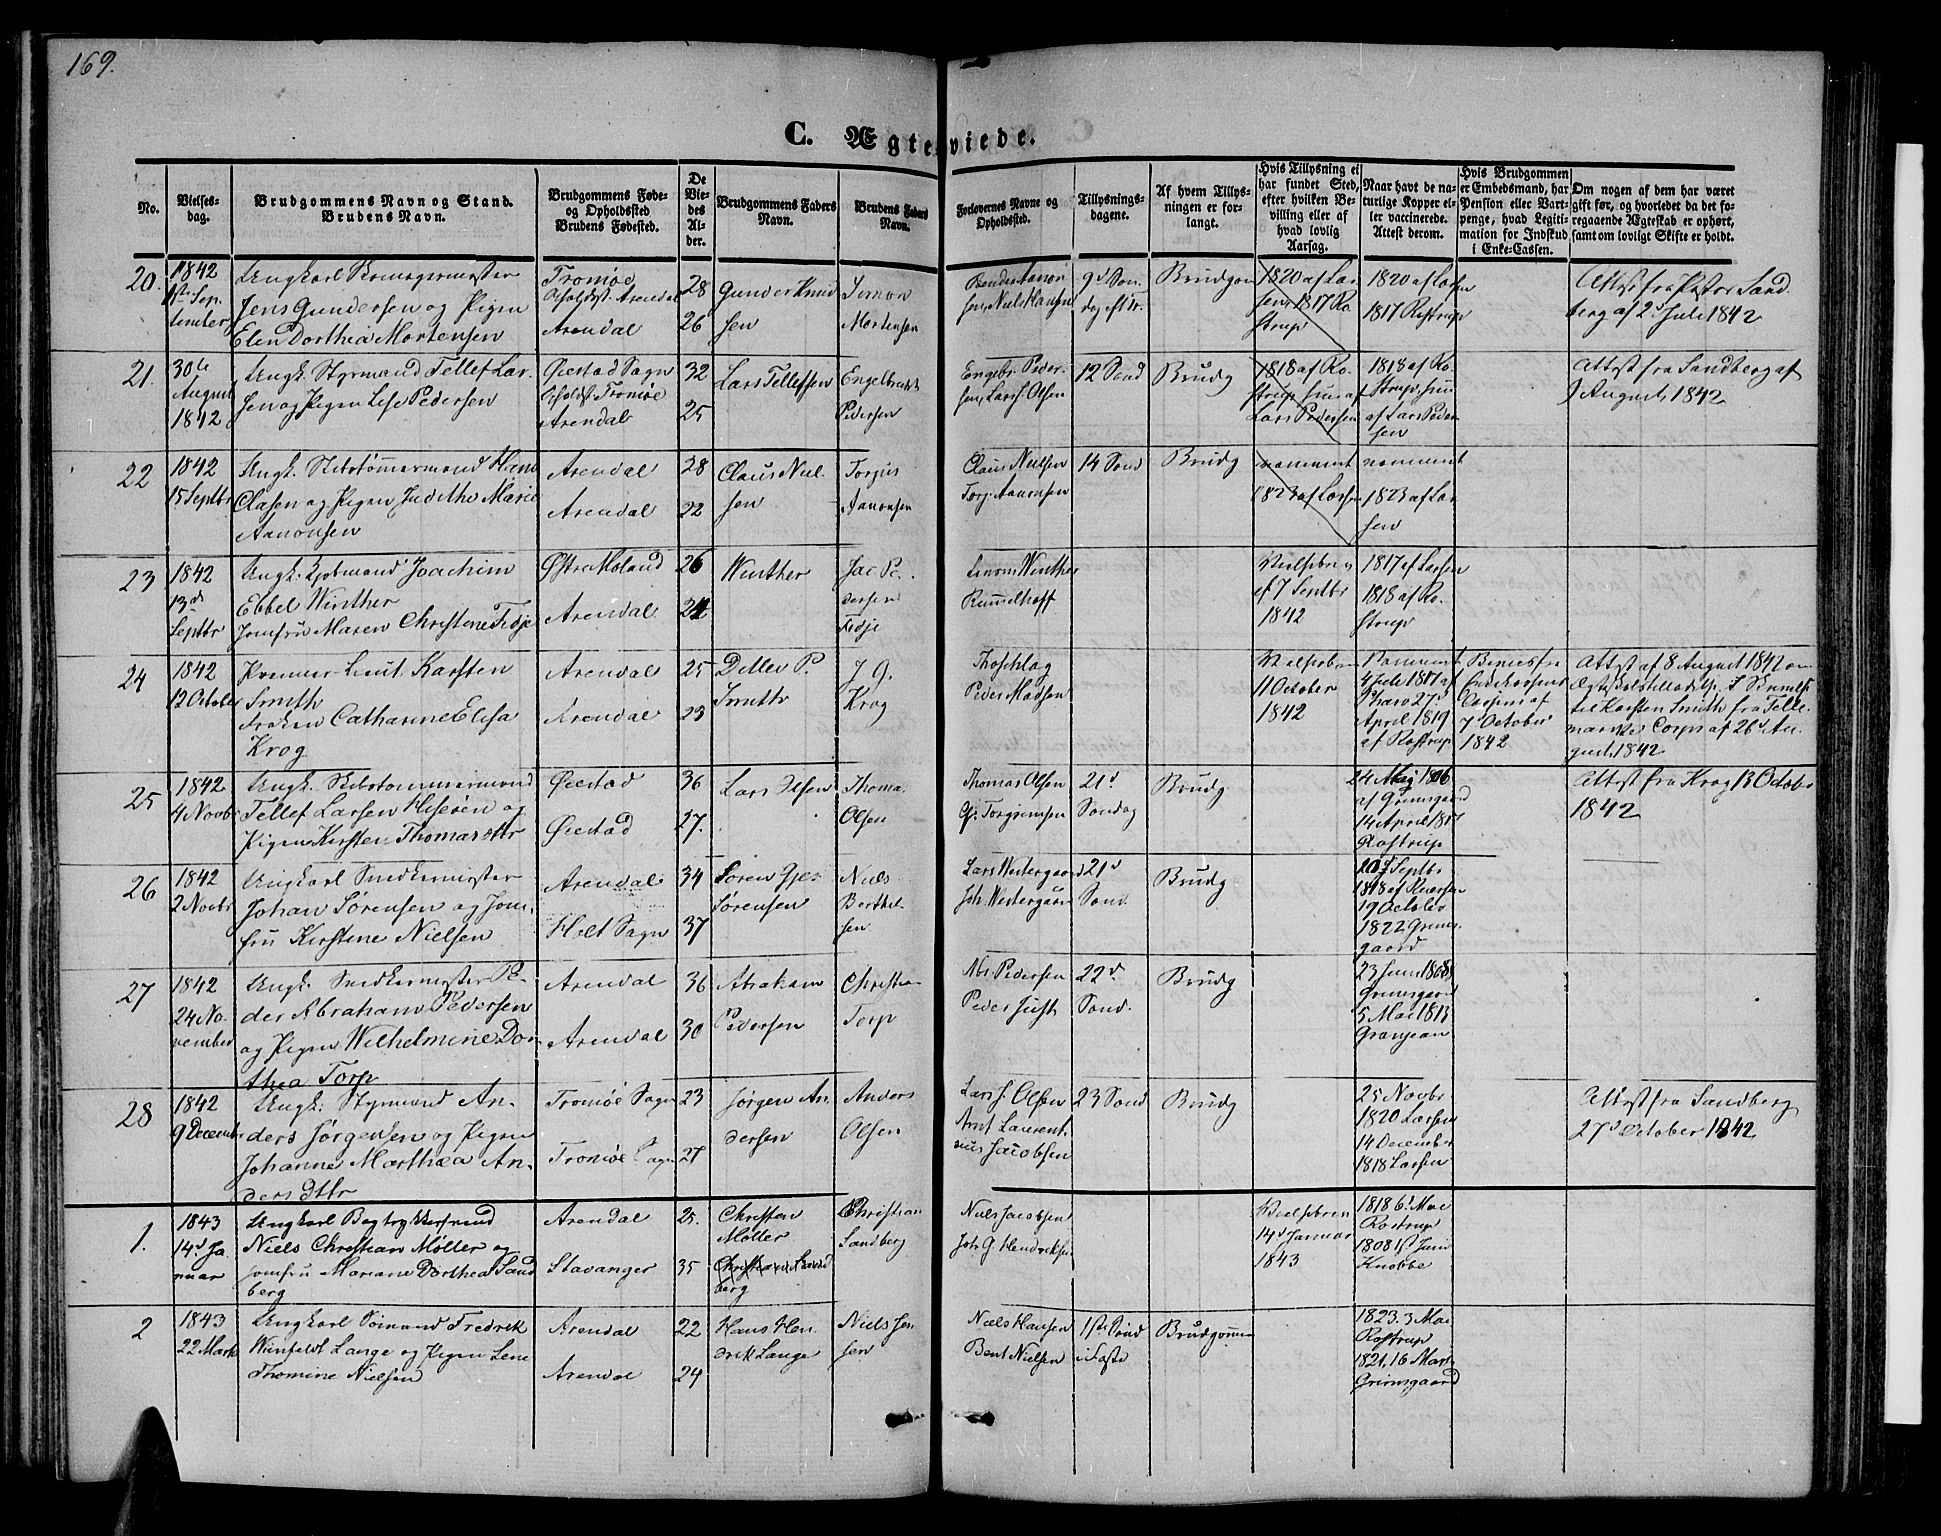 169.
C. Ægteviede.
No.
Vielses-
dag.
Brudgommens Navn og Stand.
Brudens Navn.
Brudgommens Føde-
og Opholdssted
Brudens Fødested.
De
Vie-
des
Al-
der.
Brudgommens Faders
Navn.
Brudens Faders
Navn.
Forlovernes Navne og
Opholdssted.
Tillysnings-
dagene.
Af hvem Tillys-
ningen er for-
langt.
Hvis Tillysning ei
har fundet Sted,
efter hvilken Be-
villing eller af
hvad lovlig
Aarsag.
Naar havt de na-
turlige Kopper el-
ler vaccinerede.
Attest derom.
Hvis Brudgommen
er Embedsmand, har
Pension eller Vart-
penge, hvad Legiti-
mation for Indskud
i Enke-Cassen.
Om nogen af dem har været
gift før, og hvorledes da det fo-
regaaende Ægteskab er ophørt,
samt om lovligt Skifte er holdt.
20.
1842
1ste Sep-
tember
Ungkarl Skomagermester
Jens Gundersen og Pigen
Elen Dorthea Mortensen
Tromøe
Opholdst. Arendal
Arendal
28
26
Gunder Knud
sen
Simon
Mortensen
sen, Niels Hansen
9d Søn-
dag eft Tr.
Brudgom
1820 af Lar
sen, 1817 Ro
strup
1820 af Larsen
1817 Rostrup
Attest fra Pastor Sand
berg af 2d Juli 1842
21.
30te
August
1842
Ungk. Styrmand Tellef Lar-
sen og Pigen Lise Pedersen
Øiestad Sogn
Opholdst Tromøe
Arendal
32
25
Lars Tellefsen
Engelbrekt
Pedersen
Engebr. Peder-
sen, Lars J. Olsen
12 Sønd
Brudg
1818 af Ro
strup, hun af
Lars Pedersen
1818 af Ro
strup, hun
af Lars Peder
sen
Attest fra Sandberg af
9 August 1842
22
1842
15 Septbr
Ungk. Skibstømmermand Hans
Clasen og Pigen Judithe Marie
Aanonsen
Arendal
Arendal
28
22
Claus Niel-
sen
Torjus
Aanonsen
Claus Nielsen
Torj. Aanonsen
14 Sønd
Brudg
1823 af Larsen
1823 af Lar-
sen
23
1842
13d
Septbr
Ungk. Kjøbmand Joachim
Ebbel Winther
Jomfru Maren Christene Fidje
Østre Moland
Arendal
26
24
Winther
Jac Pe-
dersen
Fidje
Simon Winther
Rummelhoff
Vielsebrev
af 7 Septbr
1842
1817 af Larsen
1818 af Ro-
strup
24
1842
12 October
Premier Lieut. Karsten
Smith
Frøken Catharine Elisa
Krog
Arendal
Arendal
25
23
Ditlev P.
Smith
J. G.
Krog
Thoschlag
Peder Madsen
Vielsebrev
11 October
1842
4 Juli 1817 af
April 1819
af Rostrup
Bevis fra
7d October
1842
Attest af 8 August 1842 om
til Karsten Smith fra Telle-
markske Corps af 26d Au-
gust 1842
25
1842
4 Novbr
Ungk. Skibstømmermand
Tellef Larsen Hisøen og
Pigen Kirsten Thomasdttr
Øiestad
Øiestad
36
27.
Lars Olsen
Thomas
Olsen
Thomas Olsen
Gj. Torgrimsen
21d
Søndag
Brudg
24 Maj 1806
af Grimsgaard
14 April 1817
Rostrup
Attest fra Krog 13 Octobr
1842
26
1842
2 Novbr
Ungkarl Snedkermester
Johan Sørensen og Jom-
fru Kirstene Nielsen
Arendal
Holt Sogn
34
37
Søren Gjer
Sørensen
Niels
Berthel
sen
Lars Westergaard
Joh. Westergaard
21d
Sønd.
Brudg
1818 af Reiersen
19 October
1822 Grims-
gaard
27
1842
24 No-
vember
Ungk. Snedkermester Pe-
der Abraham Pedersen
og Pigen Wilhelmine Dor-
thea Torp
Arendal
Arendal
36
30
Abraham
Pedersen
Christian
Torp
Abr. Pedersen
Peder Just
22d
Sønd.
Brudg
23 Juni 1808
Grimsgaard
5 Mai 1813
Granjean
28
1842
9 Decembr
Ungk. Styrmand An-
ders Jørgensen og Pigen
Johanne Marthea An-
dersdttr
Tromøe Sogn
Tromøe Sogn
23
27
Jørgen An-
dersen
Anders
Olsen
Lars J. Olsen
Arnt Laurent-
nius Jacobsen
23 Sønd
Brudg
25 Novbr
1820 Larsen
14 December
1818 Larsen
Attest fra Sandberg
27d October 1842
1.
1843
14d Ja-
nuar
Ungkarl Bogtrykkersvend
Niels Christian Møller og
Jomfru Mariane Dorthea Sand
berg
Arendal
Stavanger
25.
35
Christen
Møller
Christian Sand
berg
Christian
Sandberg
Niels Jacobsen
Joh. G. Hendriksen
Vielsebrev
14d Januar
1843
1818 6d Mai
Rostrup
1808 1st Juni
Knobbe
2
1843
22 Marts
Ungkarl Sømand Fredrik
Winfeldt Lange og Pigen Lene
Thomine Nielsen
Arendal
Arendal
22
24
Hans Hen
drik Lange
Niels Jen
sen
Niels Hansen
Bent Nielsen
1ste Sønd
i Faste
Brudgommen
1823. 3 Mai
Rostrup
1821. 16 Mart
Grimsgaard